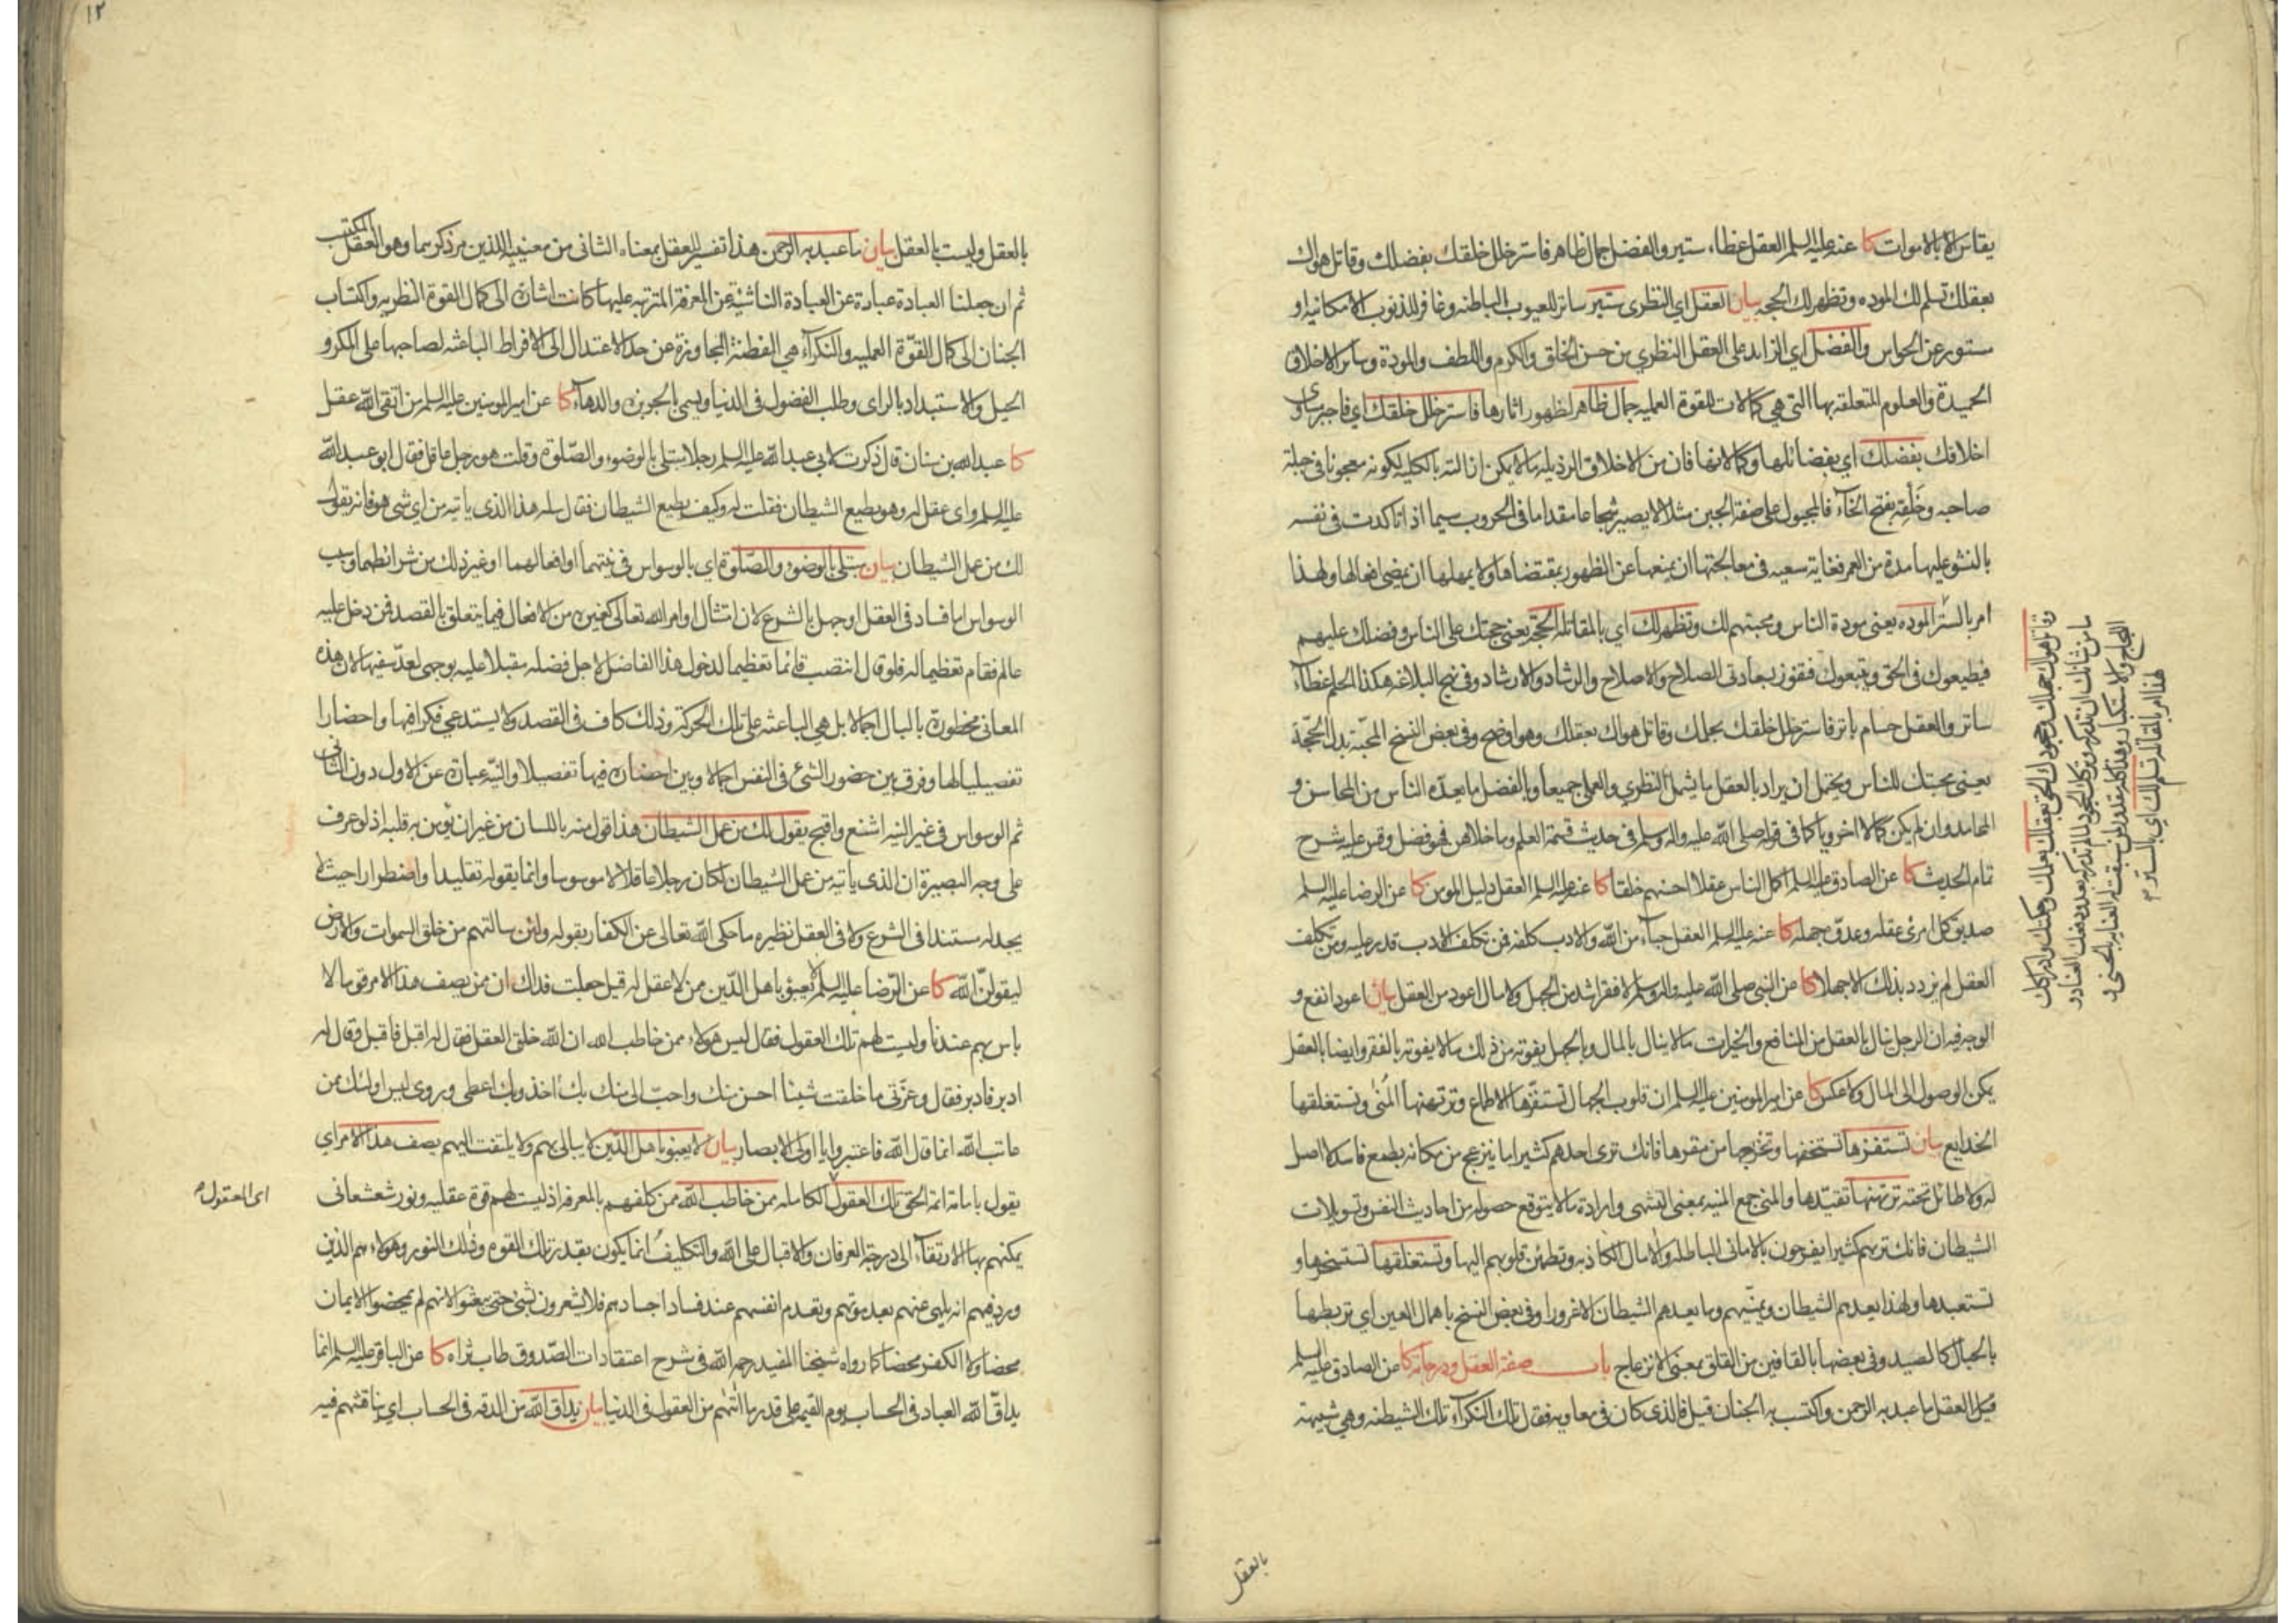 يقاس الا بالاموات كا عنه عليه السلم العقل غطاء ستير والفضل جمال ظاهر فاستر خلل خلقك بفضلك وقاتل هواك
بعقلك تسلم لك الموده وتظهر لك الحجه بيان العقل اي النظرى ستير ساتر للعيوب الباطنه وغافر للذنوب الامكانيه او
مستور عن الحواس والفضل اي الزايد على العقل النظري من حسن الخلق والكرم واللطف والمودة وساير الاخلاق
الحميدة والعلوم المتعلقه بها التي هي كمالات للقوة العمليه جمال ظاهر لظهور اثارها فاستر خلل خلقك اي فاجبر مساوى
اخلاقك بفضلك اي بفضائلها وكمالاتها فان من الاخلاق الرذيله ما لا يمكن ازالته بالكليه لكونه معجونا فى جبلة
صاحبه وخَلْقِه بفتح الخآء فالمجبول على صفة الجبن مثلا لا يصير شجاعا مقداما فى الحروب سيما اذا تاكدت فى نفسه
بالنشو عليها مدة من العمر فغاية سعيه فى معالجتها ان يمنعها عن الظهور بمقتضاها ولا يمهلها ان يمضى افعالها ولهذا
امر بالستر المودة يعنى مودة الناس ومحبتهم لك وتظهر لك اي بالمقاتله الحجة يعنى حجتك على الناس وفضلك عليهم
فيطيعوك فى الحق ويتبعوك فتفوز بسعادتى الصلاح والاصلاح والرشاد والارشاد وفى نهج البلاغه هكذا الحلم غطآء
ساتر والعقل حسام باتر فاستر خلل خلقك بحلمك وقاتل هواك بعقلك وهو اوضح وفى بعض النسخ المحبّة بدل الحجّة
يعنى محبتك للناس ويحتمل ان يراد بالعقل ما يشمل النظري والعملى جميعا وبالفضل ما يعدّه الناس من المحاسن و
المحامد وان لم يكن كمالا اخرويا كما فى قوله صلى الله عليه واله وسلم فى حديث قسمة العلم وما خلاهن فهو فضل وقس عليه شرح
تمام الحديث كا عن الصادق عليه السلم اكمل الناس عقلا احسنهم خلقا كا عنه عليه السلم العقل دليل المومن كا عن الرضا عليه السلم
صديق كل امرئ عقله وعدوّه جهله كا عنه عليه السلم العقل حبآء من الله والادب كلفه فمن تكلف الادب قدر عليه ومن تكلف
العقل لم يزدد بذلك الا جهلا كا عن النبى صلى الله عليه واله وسلم لا فقر اشد من الجهل ولا مال اعود من العقل بيان اعود انفع و
الوجه فيه ان الرجل ينال بالعقل من المنافع والخيرات ما لا ينال بالمال وبالجهل يفوته من ذلك ما لا يفوته بالفقر وايضا بالعقل
يمكن الوصول الى المال ولا عكس كا عن امير المومنين عليه السلم ان قلوب الجهال تستفزّها الاطماع وترتهنها المُنى وتستغلقها
الخدايع بيان تستفزها تستخفها وتخرجها من مقرها فانك ترى احدهم كثيرا ما ينزعج من مكانه بطمع فاسد لا اصل
له ولا طائل تحته ترتهنها تقيّدها والمنى جمع المنيه بمعنى التشهى وارادة ما لا يتوقع حصوله من احاديث النفس وتسويلات
الشيطان فانك تريهم كثيرا يفرحون بالامانى الباطله والامال الكاذبه وتطمئن قلوبهم اليها وتستغلقها تستسخرها و
تستعبدها ولهذا يعدهم الشيطان ويمنّيهم وما يعدهم الشيطان الا غرورا وفى بعض النسخ باهمال العين اي تربطها
بالحبال كالصيد وفى بعضها بالقافين من القلق بمعنى الانزعاج باب صفة العقل ودرجاته كا عن الصادق عليه السلم
قيل العقل ما عبد به الرحمن واكتسب به الجنان قيل فالذى كان فى معاويه فقال تلك النكرآء تلك الشيطنه وهى شبيهة
بالعقل
وقاتل هواك جهلك وجحودك الحق بعقلك بعلمك وحكمتك وادراكك
ما من شانك ان تدركه وتركك الجحود لما لم تدركه بعد ودفعك العناد و
اللجاج والاستكبار وهذا كله مقدور لمن سبقت له العنايه الحسنى و
لهذا امر بالمقاتله تسلم لك اي بالستر م
١٢
بالعقل وليست بالعقل بيان ما عبد به الرحمن هذا تفسير للعقل بمعناه الثانى من معنييه اللذين مر ذكرهما وهو العقل المكتسب
ثم ان جعلنا العبادة عبارة عن العبادة الناشئة عن المعرفة المترتبه عليها كانت اشارة الى كمال القوة النظريه واكتساب
الجنان الى كمال القوّة العمليه والنكرآء هى الفطنة المجاوزة عن حد الاعتدال الى الافراط الباعثه لصاحبها على المكر و
الحيل والاستبداد بالراى وطلب الفضول فى الدنيا ويسمى بالجربزه والدهآء كا عن امير المومنين عليه السلم من اتقى الله عقل
كا عبد الله بن سنان قال ذكرت لابى عبد الله عليه السلم رجلا مبتلى بالوضوء والصّلوة وقلت هو رجل عاقل فقال ابو عبد الله
عليه السلم واى عقل له وهو يطيع الشيطان فقلت له وكيف يطيع الشيطان فقال سله هذا الذى ياتيه من اي شى هو فانه يقول
لك من عمل الشيطان بيان مبتلى بالوضوء والصّلوة اى بالوسواس فى نيتهما او افعالهما او غير ذلك من شرائطهما وسبب
الوسواس اما فساد فى العقل او جهل بالشرع لان امتثال اوامر الله تعالى كغيره من الافعال فيما يتعلق بالقصد فمن دخل عليه
عالم فقام تعظيما له فلو قال انتصب قائما تعظيما لدخول هذا الفاضل لاجل فضله مقبلا عليه بوجهى لعدّ سفيها لان هذه
المعانى مخطورة بالبال اجمالا بل هى الباعثه على تلك الحركة وذلك كاف فى القصد ولا يستدعى فكرا فيها واحضارا
تفصيليا لها وفرق بين حضور الشئ فى النفس اجمالا وبين احضاره فيها تفصيلا والنيّه عبارة عن الاول دون الثانى
ثم الوسواس فى غير النيه اشنع واقبح يقول لك من عمل الشيطان هذا قول منه باللسان من غير ان يؤمن به قلبه اذ لو عرف
على وجه البصيرة ان الذى ياتيه من عمل الشيطان لكان رجلا عاقلا لا موسوسا وانما يقوله تقليدا واضطرارا حيث لا
يجد له مستندا فى الشرع ولا فى العقل نظيره ما حكى الله تعالى عن الكفار بقوله ولئن سالتهم من خلق السموات والارض
ليقولنّ الله كا عن الرّضا عليه السلم لا يعبؤ باهل الدّين ممن لا عقل له قيل جعلت فداك ان ممن يصف هذا الامر قوما لا
باس بهم عندنا وليست لهم تلك العقول فقال ليس هولاء ممن خاطب الله ان الله خلق العقل فقال له اقبل فاقبل وقال له
ادبر فادبر فقال وعزّتى ما خلقت شيئا احسن منك واحبّ الى منك بك آخذ وبك اعطى وروى ليس اولئك ممن
عاتب الله انما قال الله فاعتبروا يا اولى الابصار بيان لا يعبؤ باهل الدّين لا يبالى بهم ولا يلتفت اليهم يصف هذا الامر اي
يقول بامامة ائمة الحق تلك العقول الكامله ممن خاطب الله ممن كلفهم بالمعرفه اذ ليست لهم قوة عقليه ونور شعشعانى
اى العقول م
يمكنهم بها الارتقآء الى درجة العرفان والاقبال على الله والتكليف انما يكون بقدر تلك القوه وذلك النور وهولاء هم الذين
ورد فيهم انه يلهى عنهم بعد موتهم ويعدم انفسهم عند فساد اجسادهم فلا يشعرون بشئ حتى يبعثوا لانهم لم يمحضوا الايمان
محضا ولا الكفر محضا كما رواه شيخنا المفيد رحمه الله فى شرح اعتقادات الصّدوق طاب ثراه كا عن الباقر عليه السلم انما
يداقّ الله العباد فى الحساب يوم القيمه على قدر ما اتيهم من العقول فى الدنيا بيان يداق الله من الدقه فى الحساب اي يناقشهم فيه